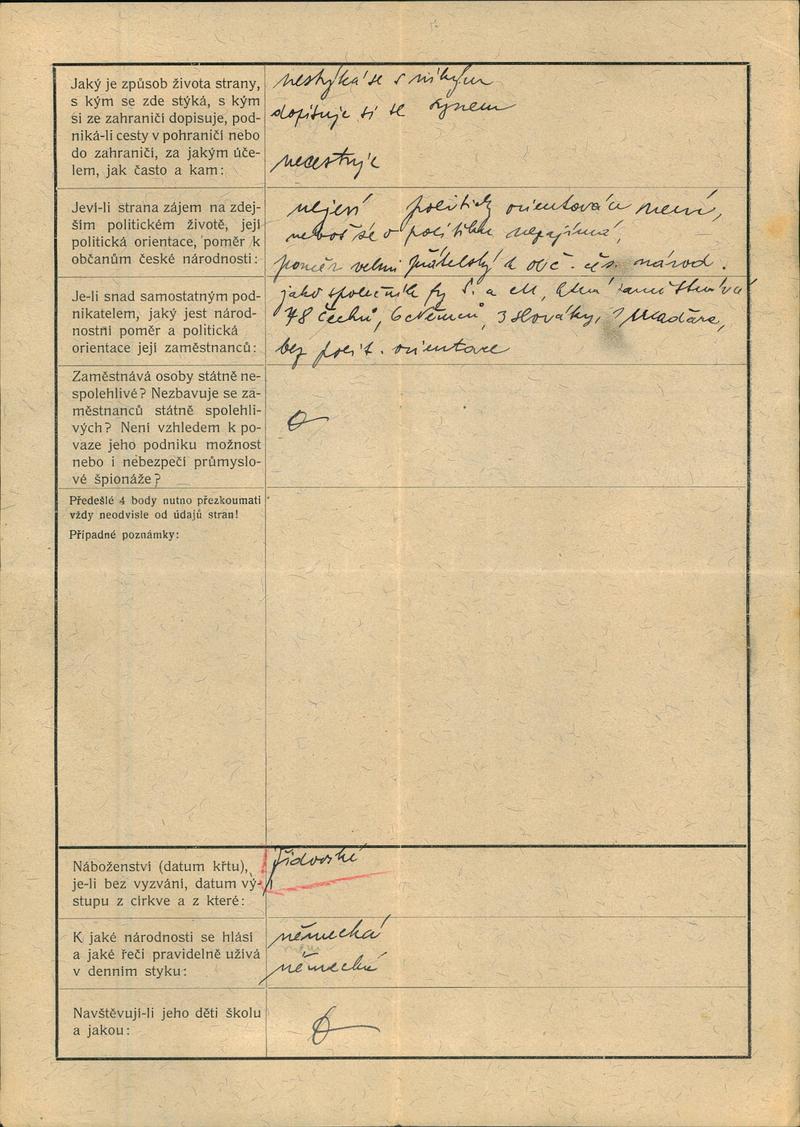 Jaký je způsob života strany,
s kým se zde stýká, s kým
si ze zahraničí dopisuje, pod-
niká-li cesty v pohraničí nebo
do zahraničí, za jakým úče-
lem, jak často a kam:
nestýká se s nikým
dopisuje si se synem
necestuje
Jeví-li strana zájem na zdej-
ším politickém životě, její
politická orientace, poměr k
občanům české národnosti:
nejeví politicky orientován není,
neboť se o politiku nezajímá,
poměr velmi přátelský k obč. čs. národ.
Je-li snad samostatným pod-
nikatelem, jaký jest národ-
nostní poměr a politická
orientace její zaměstnanců:
jako společník fy S. a M, která zaměstnává
48 Čechů, 6 Němců, 3 Slováky, 1 Maďara,
bez polit. orientace
Zaměstnává osoby státně ne-
spolehlivé? Nezbavuje se za-
městnanců státně spolehli-
vých? Není vzhledem k po-
vaze jeho podniku možnost
nebo i nebezpečí průmyslo-
vé špionáže?
Předešlé 4 body nutno přezkoumati
vždy neodvisle od údajů stran!
Případné poznámky:
Náboženství (datum křtu),
je-li bez vyzvání, datum vý-
stupu z církve a z které:
židovské
K jaké národnosti se hlásí
a jaké řeči pravidelně užívá
v denním styku:
německá
německé
Navštěvují-li jeho děti školu
a jakou: